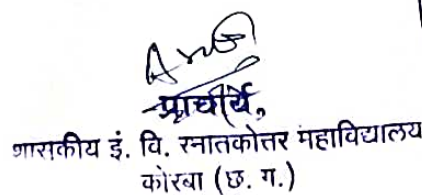 प्राचार्य,
शासकीय इं. वि. स्नातकोत्तर महाविद्यालय
कोरबा (छ. ग.)